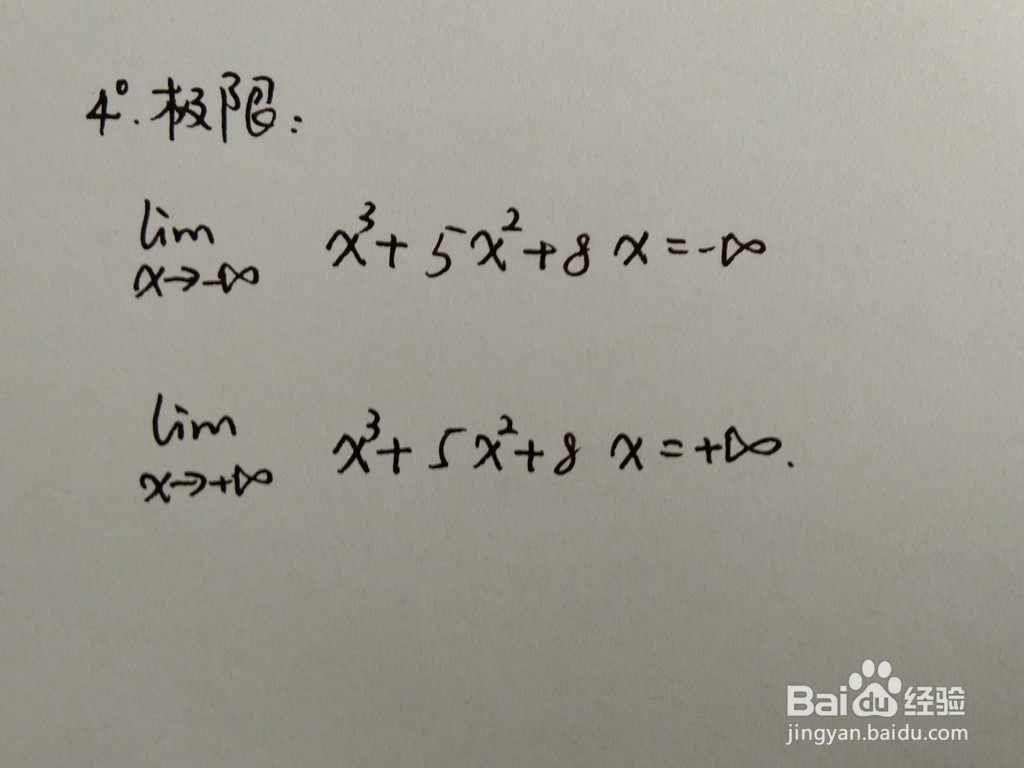 4°.极限:
lim x→-∞ x³+5x²+8x=-∞
lim x→+∞ x³+5x²+8x=+∞.
Bai du 经验
jingyan.baidu.com